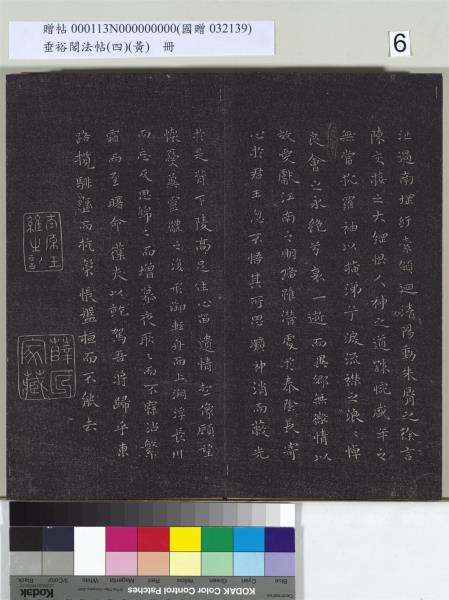 贈帖 000113N000000000(國贈 032139)
垂裕閣法帖(四)(黃) 冊
6
沚過南堈紆素領迴清陽動朱脣之徐言
陳交接之大綱恨人神之道殊悅盛年之
無當抗羅袂以掩涕兮淚流襟之浪浪悼
良會之永絕兮哀一逝而異鄉無微情以
效愛獻江南之明璫雖潛處於泰陰長寄
心於君王忽不悟其所思悵神消而蔽光
於是背下陵高足往心留遺情想像顧望
懷憂冀靈體之復形御輕舟而上溯浮長川
而忘反思綿綿而增慕夜耿耿而不寐沾繁
霜而至曙命僕夫以就駕吾將歸乎東
路攬騑轡而抗策悵盤桓而不能去
家藏
Blue
Cyan
Green
Yellow
Red
Magenta
White
3/Color
Black
KODAK Color Control Patches
Kodak